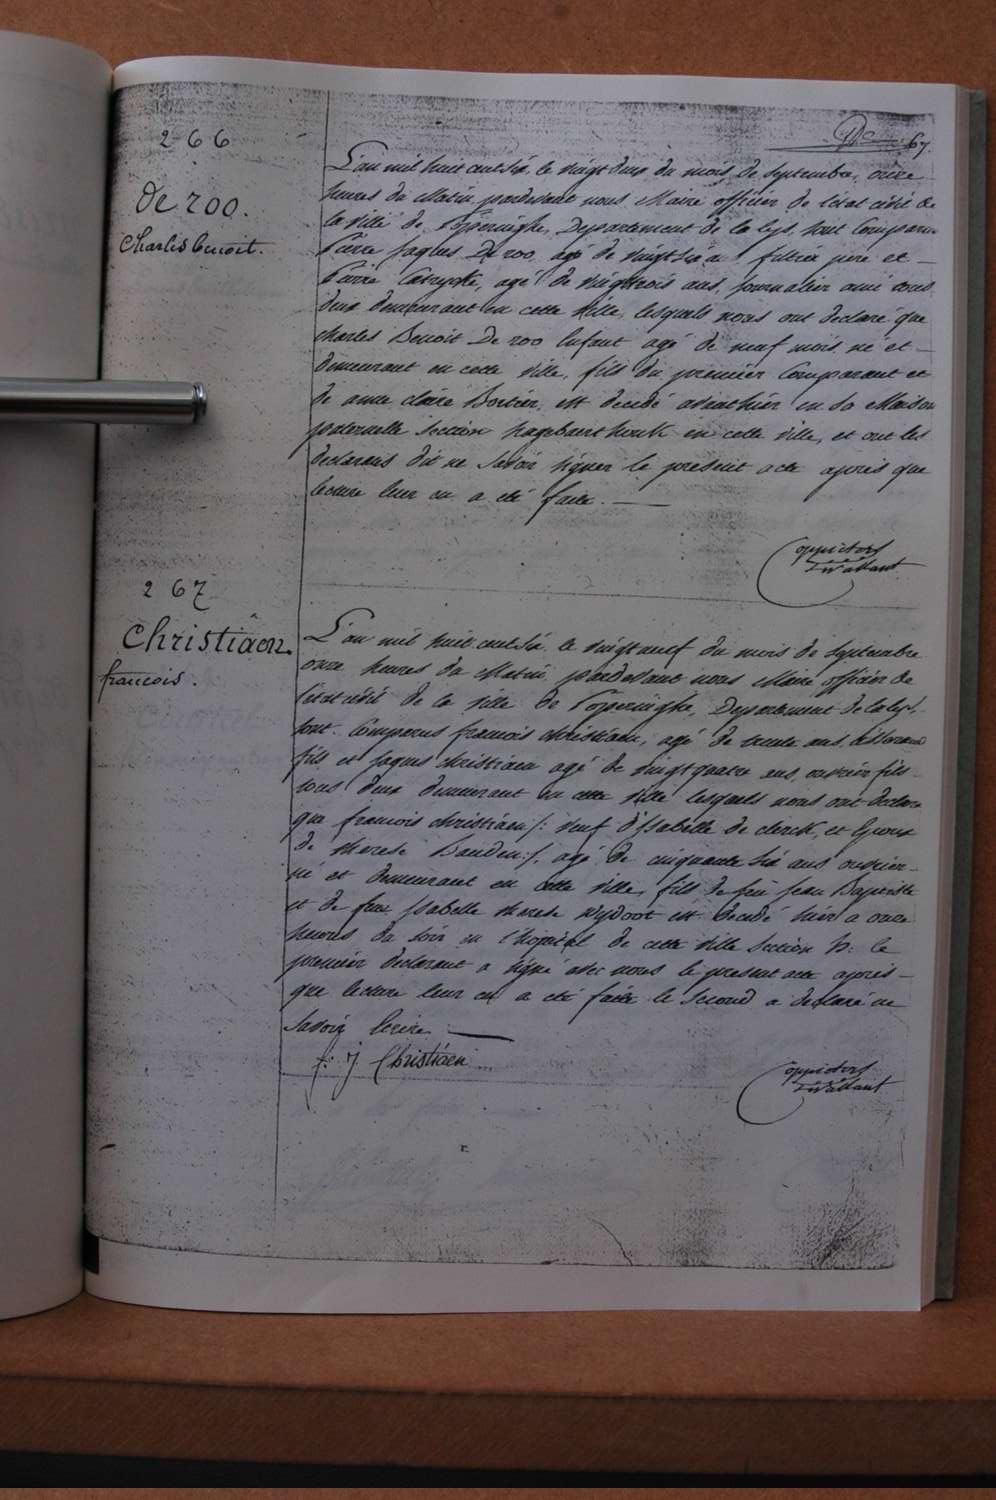 67.
266
De roo.
Charles benoit.
L'an mil huit cent six, le vingt deux du mois de Septembre, onze
heures du Matin, pardevant nous Maire officier de l'état civil de
la ville de Poperinghe, Departement de la Lys, sont Comparus
Pierre Jaques De roo, agé de vingt six ans filtier pere et
Pierre agé de vingt trois ans, Journalier ami tous
deux demeurant en cette Ville, lesquels nous ont declaré que
charles Benoit De roo Enfant agé de neuf mois né et
demeurant en cette ville, fils du premier Comparant et
de anne claire est decedé avant hier en sa Maison
paternelle Section en cette ville, et ont les
declarans dit ne savoir signer le present acte après que
lecture leur en a été faite.
267
Christiaen.
francois.
L'an mil huit cent six, le vingt neuf du mois de Septembre
onze heures du Matin, pardevant nous Maire officier de
l'état civil de la ville de Poperinghe, Departement de la Lys,
sont Comparus francois christiaen, agé de trente ans,
fils et Jaques christiaen agé de vingt quatre ans, ouvrier fils
tous deux demeurant en cette ville lesquels nous ont declaré
que francois christiaen /: veuf d'Isabelle de clerck, et Epoux
de therese :/ agé de cinquante six ans ouvrier
né et demeurant en cette ville, fils de feu Jean Baptiste
et de feue Isabelle therese est decedé hier a onze
heures du soir en l'hopital de cette ville Section h: le
premier declarant a signé avec nous le present acte après
que lecture leur en a été faite le Second a declaré ne
savoir Ecrire
f: J Christiaen